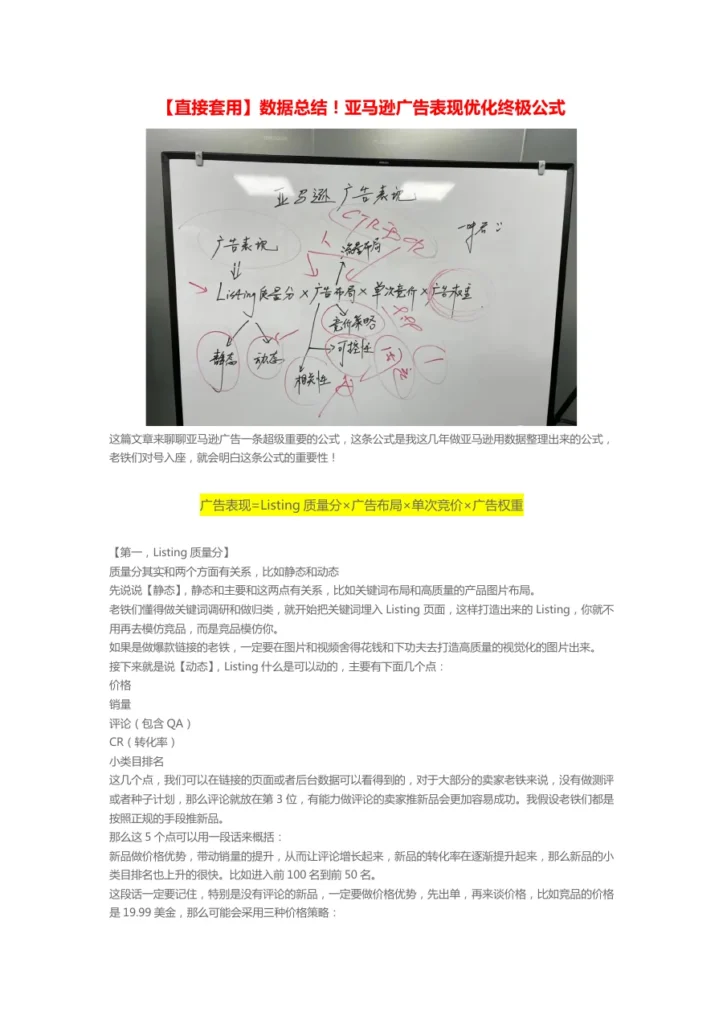 【直接套用】数据总结！亚马逊广告表现优化终极公式
亚马逊广告表现
CTR
广告表现
流量布局
Listing质量分×广告布局×单次竞价×广告权重
竞价策略
静态
动态
可控性
相关性
这篇文章来聊聊亚马逊广告一条超级重要的公式，这条公式是我这几年做亚马逊用数据整理出来的公式，
老铁们对号入座，就会明白这条公式的重要性！
广告表现=Listing 质量分×广告布局×单次竞价×广告权重
【第一，Listing 质量分】
质量分其实和两个方面有关系，比如静态和动态
先说说【静态】，静态和主要和这两点有关系，比如关键词布局和高质量的产品图片布局。
老铁们懂得做关键词调研和做归类，就开始把关键词埋入 Listing 页面，这样打造出来的 Listing，你就不
用再去模仿竞品，而是竞品模仿你。
如果是做爆款链接的老铁，一定要在图片和视频舍得花钱和下功夫去打造高质量的视觉化的图片出来。
接下来就是说【动态】，Listing 什么是可以动的，主要有下面几个点：
价格
销量
评论（包含 QA）
CR（转化率）
小类目排名
这几个点，我们可以在链接的页面或者后台数据可以看得到的，对于大部分的卖家老铁来说，没有做测评
或者种子计划，那么评论就放在第 3 位，有能力做评论的卖家推新品会更加容易成功。我假设老铁们都是
按照正规的手段推新品。
那么这 5 个点可以用一段话来概括：
新品做价格优势，带动销量的提升，从而让评论增长起来，新品的转化率在逐渐提升起来，那么新品的小
类目排名也上升的很快。比如进入前 100 名到前 50 名。
这段话一定要记住，特别是没有评论的新品，一定要做价格优势，先出单，再来谈价格，比如竞品的价格
是 19.99 美金，那么可能会采用三种价格策略：